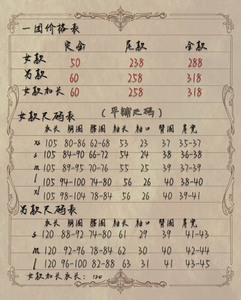 一团价格表
定金 尾款 全款
女款 50 238 288
男款 60 258 318
女款加长 60 258 318
女款尺码表 (平铺尺码)
衣长 胸围 腰围 袖长 袖口 臂围 肩宽
xs 105 80-86 62-68 53 23 37 35-37
s 105 84-90 66-72 54 24 38 36-38
m 105 89-95 70-76 55 25 39 37-39
l 105 94-100 74-80 56 26 40 38-40
xl 105 98-104 78-84 56 26 40 39-41
男款尺码表
衣长 胸围 腰围 袖长 袖口 臂围 肩宽
s 120 88-92 74-80 61 29 39 41-43
m 120 92-96 78-84 62 30 40 42-44
l 120 96-100 82-88 63 31 41 43-45
女款加长衣长: